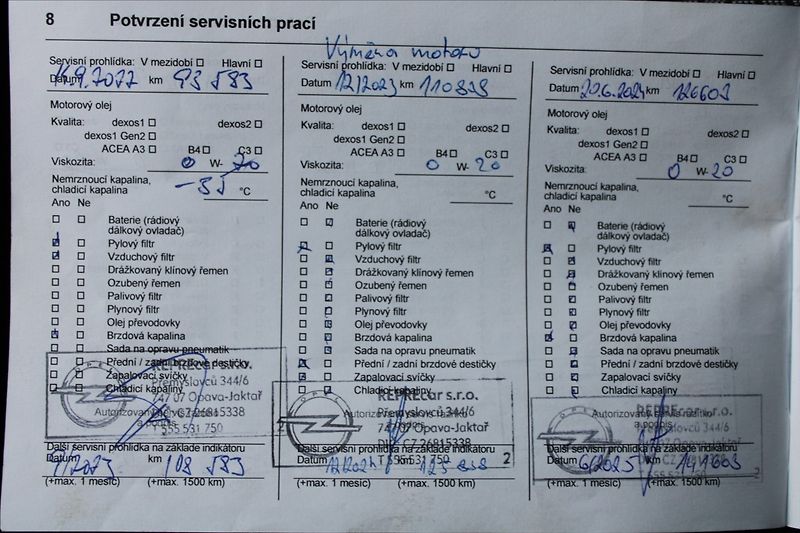 8 Potvrzení servisních prací
Servisní prohlídka: V mezidobí Hlavní
Datum 14.9.2022 km 93 583
Motorový olej
Kvalita: dexos1 dexos2
dexos1 Gen2
ACEA A3 B4 C3
Viskozita: 0 W- 20
Nemrznoucí kapalina,
chladicí kapalina -35 °C
Ano Ne
Baterie (rádiový
dálkový ovladač)
Pylový filtr
Vzduchový filtr
Drážkovaný klínový řemen
Ozubený řemen
Palivový filtr
Plynový filtr
Olej převodovky
Brzdová kapalina
Sada na opravu pneumatik
Přední / zadní brzdové destičky
Zapalovací svíčky
Chladicí kapaliny
OPEL
REPREcar s.r.o.
Přemyslovců 344/6
747 07 Opava-Jaktař
DIČ CZ 26815338
T 555 531 750
Další servisní prohlídka na základě indikátoru
Datum 9/2023 km 108 583
(+max. 1 měsíc) (+max. 1500 km)
Výměna motoru
Servisní prohlídka: V mezidobí Hlavní
Datum 12/2023 km 110838
Motorový olej
Kvalita: dexos1 dexos2
dexos1 Gen2
ACEA A3 B4 C3
Viskozita: 0 W- 20
Nemrznoucí kapalina,
chladicí kapalina °C
Ano Ne
Baterie (rádiový
dálkový ovladač)
Pylový filtr
Vzduchový filtr
Drážkovaný klínový řemen
Ozubený řemen
Palivový filtr
Plynový filtr
Olej převodovky
Brzdová kapalina
Sada na opravu pneumatik
Přední / zadní brzdové destičky
Zapalovací svíčky
Chladicí kapaliny
OPEL
REPREcar s.r.o.
Přemyslovců 344/6
747 07 Opava-Jaktař
DIČ CZ 26815338
T 555 531 750 2
Další servisní prohlídka na základě indikátoru
Datum 12/2024 km 125 838
(+max. 1 měsíc) (+max. 1500 km)
Servisní prohlídka: V mezidobí Hlavní
Datum 20.6.2024 km 126603
Motorový olej
Kvalita: dexos1 dexos2
dexos1 Gen2
ACEA A3 B4 C3
Viskozita: 0 W- 20
Nemrznoucí kapalina,
chladicí kapalina °C
Ano Ne
Baterie (rádiový
dálkový ovladač)
Pylový filtr
Vzduchový filtr
Drážkovaný klínový řemen
Ozubený řemen
Palivový filtr
Plynový filtr
Olej převodovky
Brzdová kapalina
Sada na opravu pneumatik
Přední / zadní brzdové destičky
Zapalovací svíčky
Chladicí kapaliny
REPREcar s.r.o.
Přemyslovců 344/6
747 07 Opava-Jaktař
DIČ CZ 26815338
T 555 531 750 2
Další servisní prohlídka na základě indikátoru
Datum 6/2025 km 141603
(+max. 1 měsíc) (+max. 1500 km)